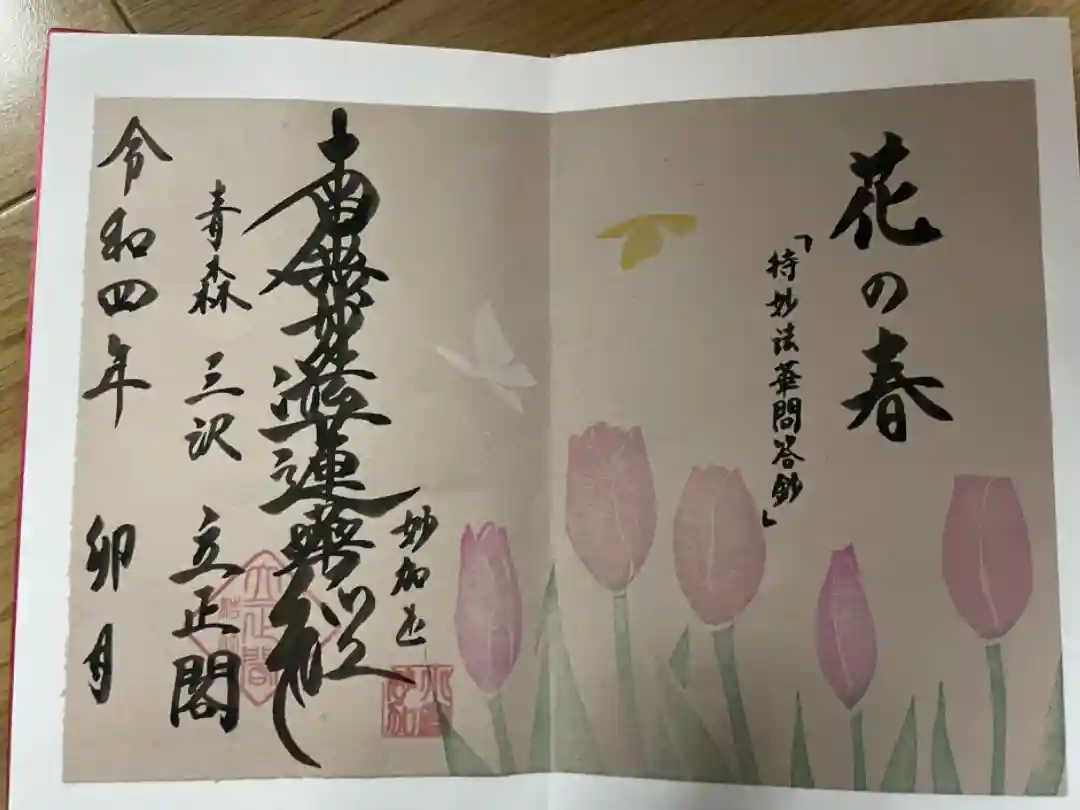 花の春
「持妙法華問答鈔」
妙加
南無妙法蓮華経
青森 三沢 立正閣
令和四年 卯月